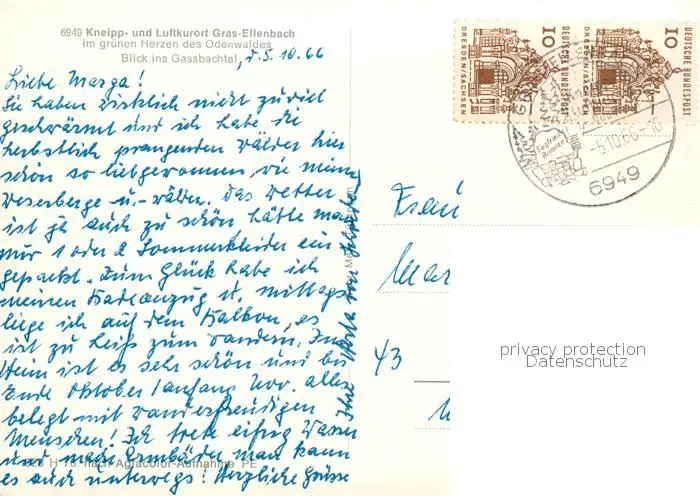 6949 Kneipp- und Luftkurort Gras-Ellenbach
im grünen Herzen des Odenwaldes
Blick ins Gassbachtal, d. 5.10.66
Liebe Marga!
Sie haben wirklich nicht zuviel
geschwärmt und ich habe die
herbstlich prangenden Wälder hier
schon so liebgewonnen, wie meine
Weserberge u. -wälder. Das Wetter
ist ja auch zu schön hätte man
nur 1 oder 2 Sommerkleider ein-
gepackt. Zum Glück habe ich
meinen Badeanzug u. mittags
liege ich auf dem Balkon, es
ist zu heiß zum wandern. Im
Heim ist es sehr schön und bis
Ende Oktober/anfang Nov. alles
belegt mit wanderfreudigen
Menschen! Ich trete eifrig Wasser
und mache Armbäder man kann
es auch unterwegs! Herzliche Grüsse
Ihre
H 76 nach Agfacolor-Aufnahme PE
DEUTSCHE BUNDESPOST
10
DRESDEN/SACHSEN
DEUTSCHE BUNDESPOST
10
DRESDEN/SACHSEN
Siegfried
Brunnen
-5.10.66-18
6949
Frau
Mar
43
privacy protection
Datenschutz